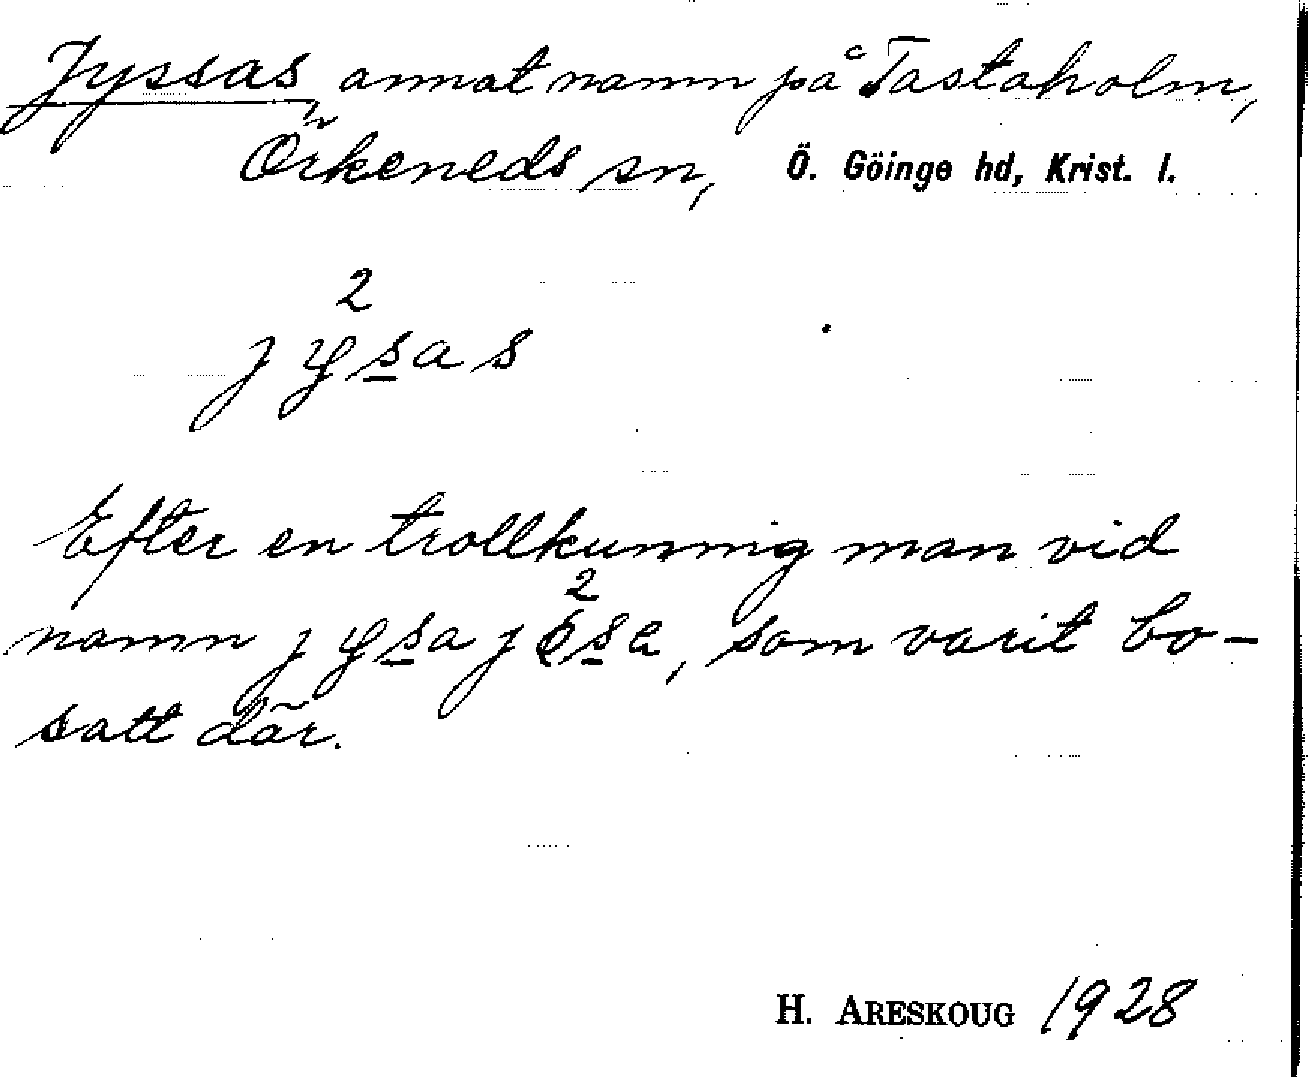 Jyssas, annat namn på Tastaholm,
Örkeneds sn, Ö. Göinge hd, Krist. l.
2
jysas
Efter en trollkunnig man vid
2
namn jysa jösa, som varit bo-
satt där.
H. ARESKOUG 1928